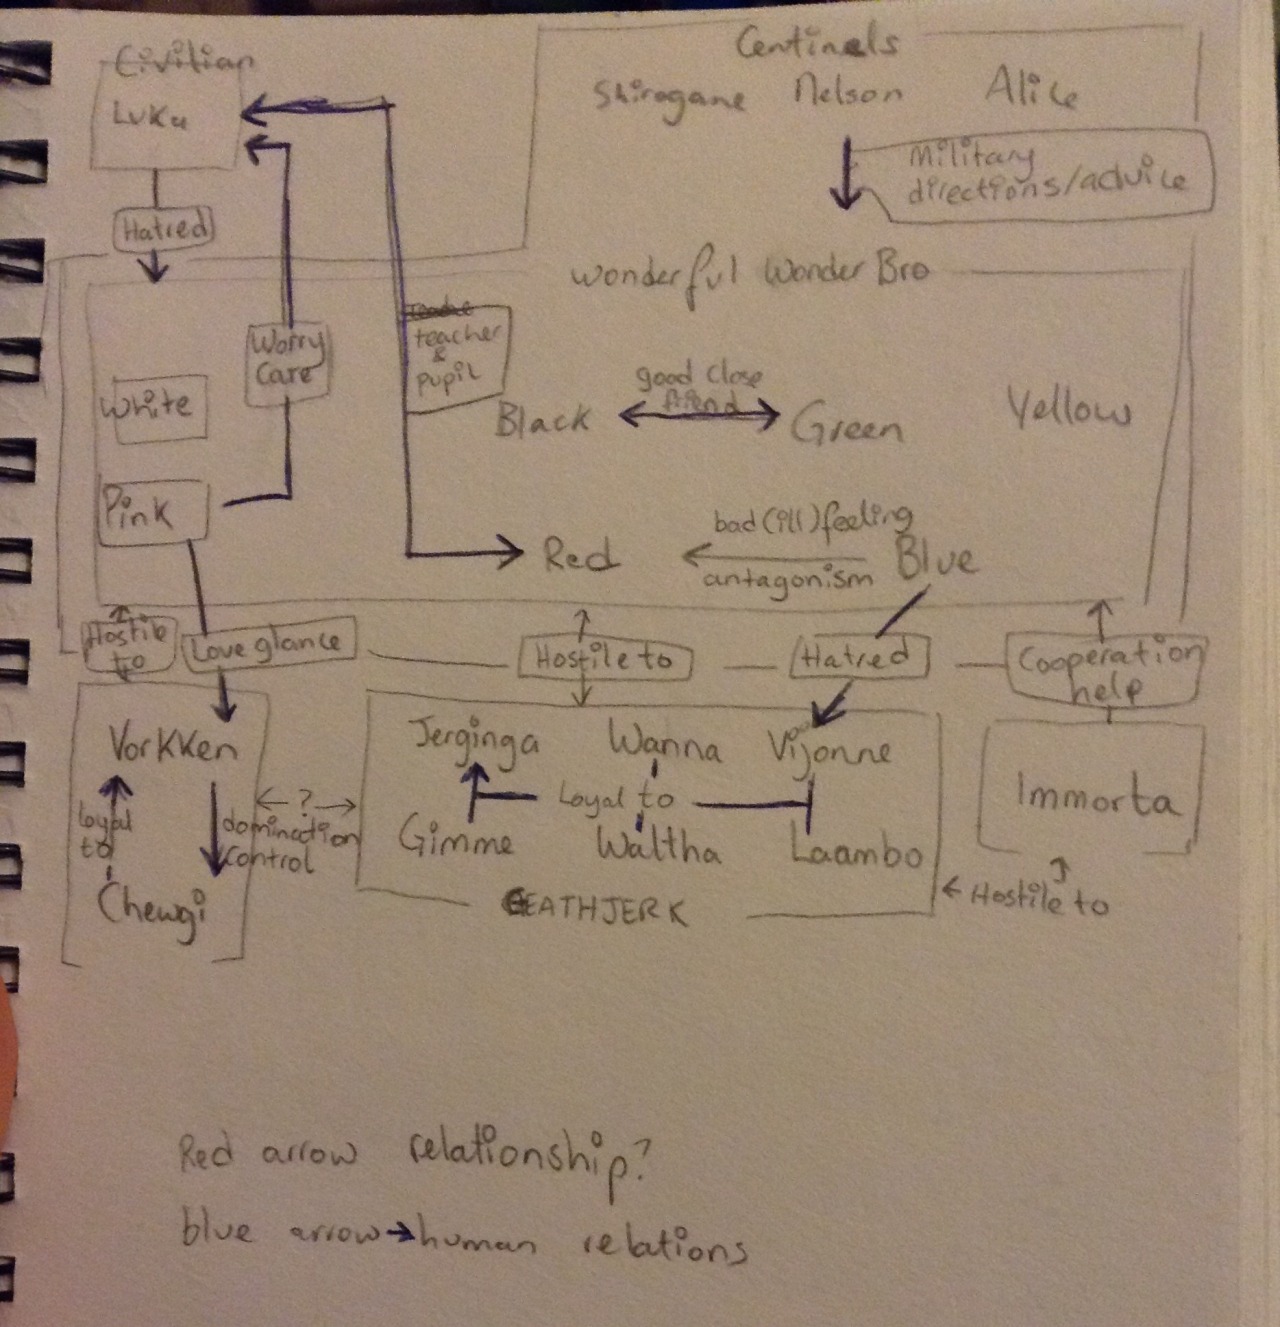 Civilian
Luka
Hatred
Centinels
Shirogane Nelson Alice
Military
directions/advice
Wonderful Wonder Bro
White
Pink
Worry
Care
teacher
&
pupil
Black
good close
friend
Green
Yellow
Red
bad(ill)feeling
antagonism
Blue
Hostile
to
Love glance
Hostile to
Hatred
Cooperation
help
Vorkken
loyal
to
Chewgi
?
domination
control
Jerginga Wanna Vijonne
Loyal to
Gimme Waltha Laambo
DEATHJERK
Immorta
Hostile to
Red arrow relationship?
blue arrow→human relations